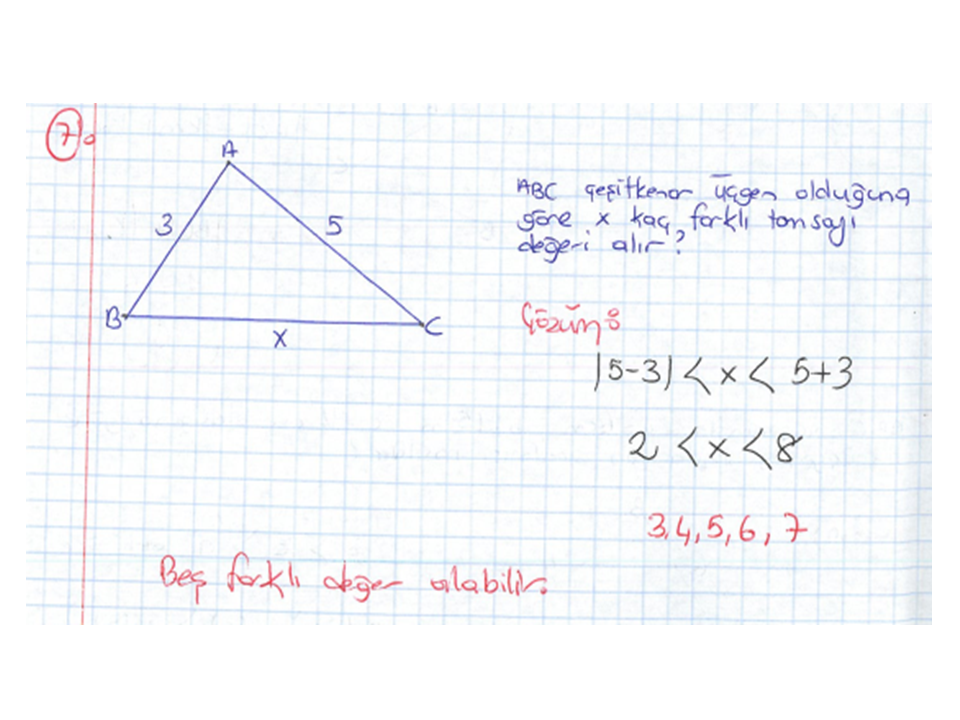 7.
A
3
5
B
C
x
ABC çeşitkenar üçgen olduğuna
göre x kaç farklı tamsayı
değeri alır?
Çözüm:
|5-3| < x < 5+3
2 < x < 8
3,4,5,6,7
Beş farklı değer alabilir.